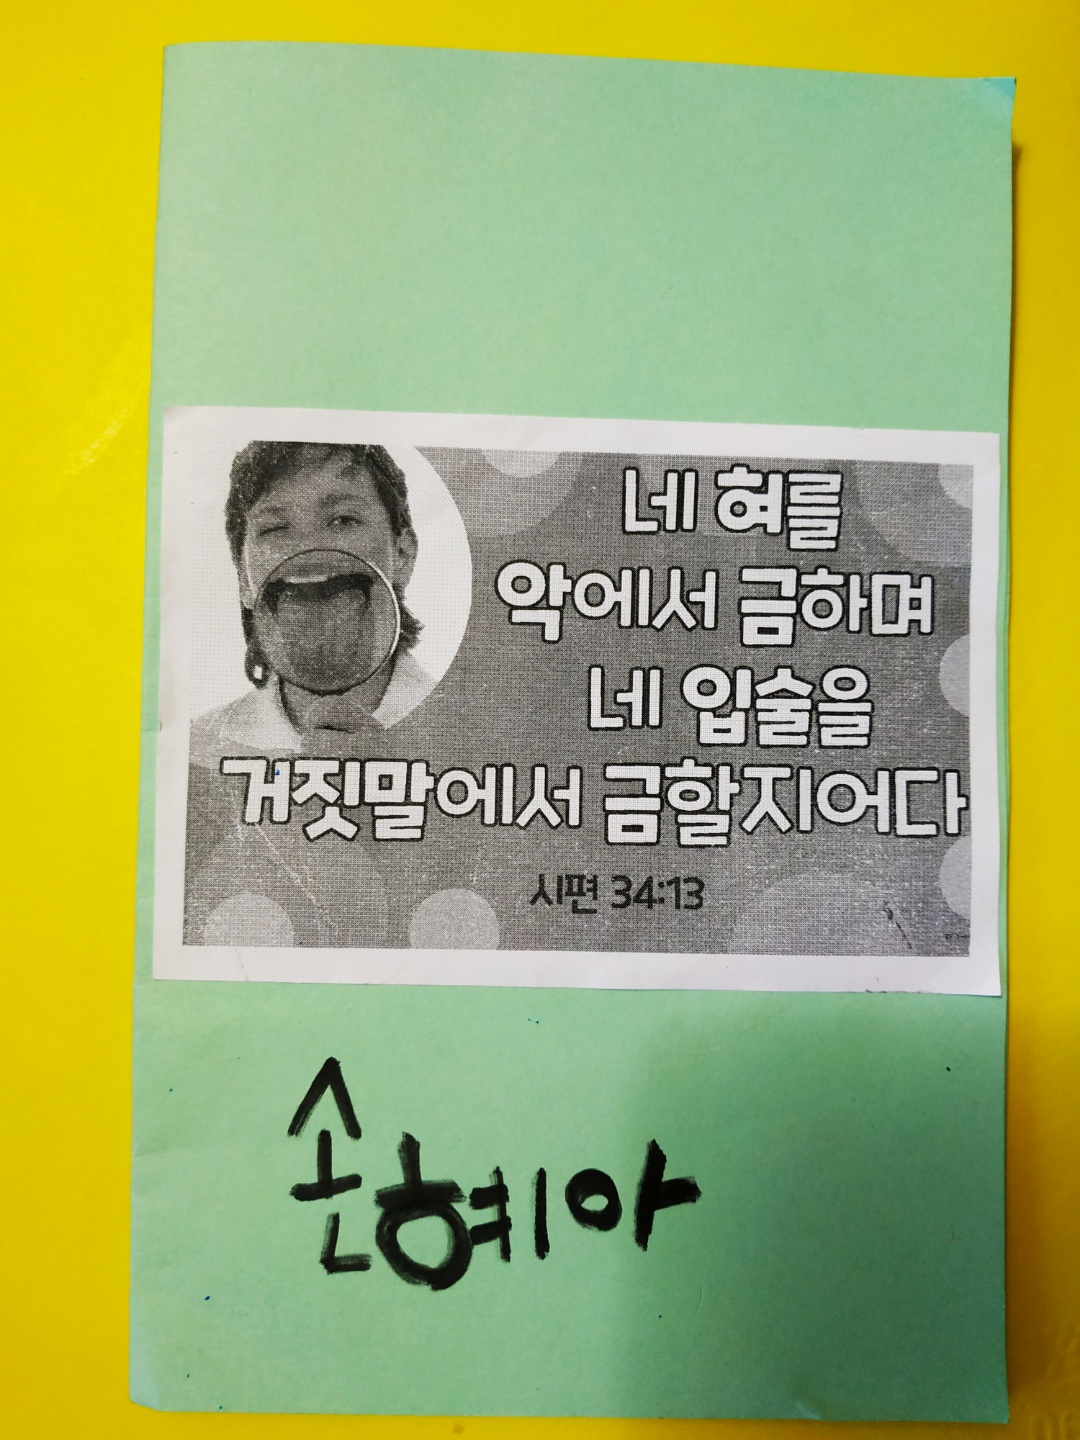 네 혀를
악에서 금하며
네 입술을
거짓말에서 금할지어다
시편 34:13
손혜아